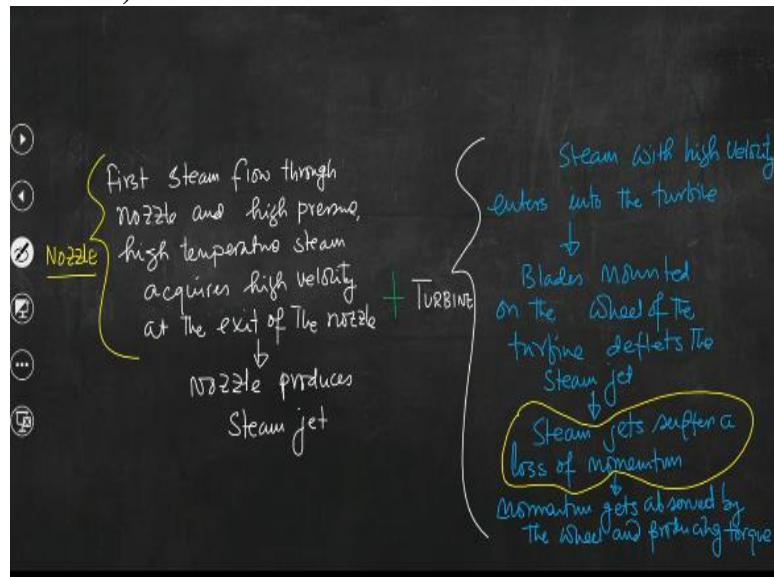 Nozzle
first steam flow through
nozzle and high pressure,
high temperature steam
acquires high velocity
at the exit of The nozzle
↓
Nozzle produces
Steam jet
+
TURBINE
Steam with high velocity
enters into the turbine
↓
Blades mounted
on the wheel of the
turbine deflets The
Steam jet
↓
Steam jets suffer a
loss of momentum
↓
momentum gets absorved by
The wheel and producing torque